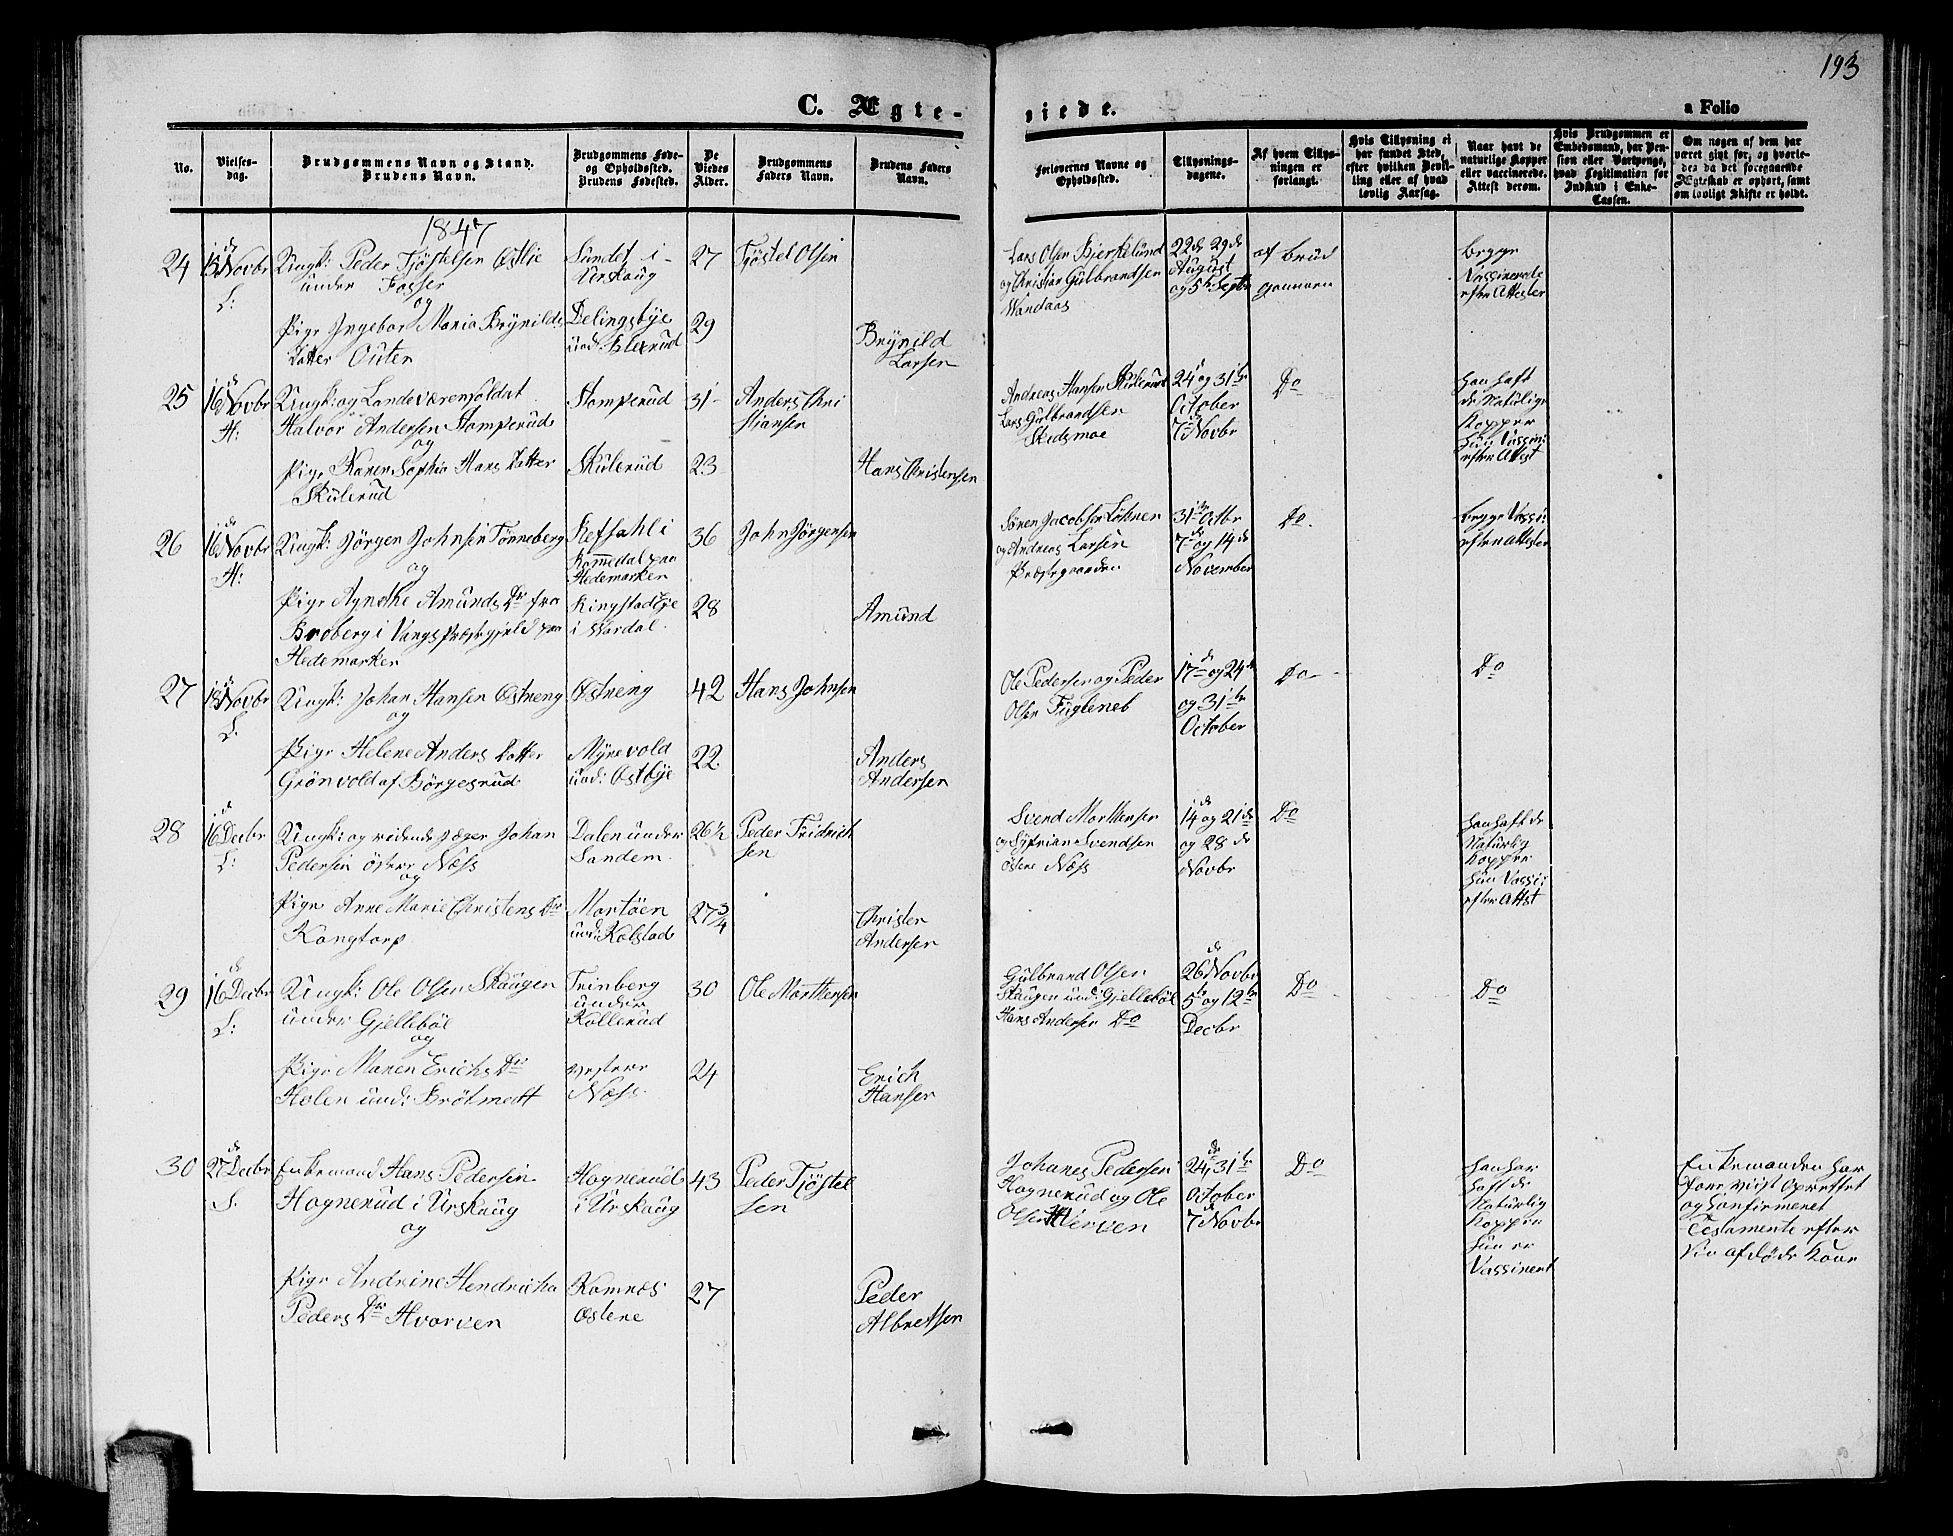 193
C. Ægte-
viede.
a Folio
No.
Vielses-
dag.
Brudgommens Navn og Stand.
Brudens Navn.
Brudgommens Føde-
og Opholdssted.
Brudens Fødested.
De
Viedes
Alder.
Brudgommens
Faders Navn.
Brudens Faders
Navn.
Forlovernes Navne og
Opholdssted.
Tillysnings-
dagene.
Af hvem Tillys-
ningen er
forlangt.
Hvis Tillysning ei
har fundet Sted,
efter hvilken Bevil-
ling eller af hvad
lovlig Aarsag.
Naar havt de
naturlige Kopper
eller vaccinerede.
Attest derom.
Hvis Brudgommen er
Embedsmand, har Pen-
sion eller Vartpenge,
hvad Legitimation for
Indskud i Enke-
Cassen.
Om nogen af dem har
været gift før, og hvorle-
des da det foregaaende
Ægteskab er ophørt, samt
om lovligt Skifte er holdt.
1847
24
15 de Novbr
L:
Ungk: Peder Tjøstelsen Østlie
under Fosser
og
Pige Ingebor Maria Brynilds
Datter Outen
Sundet i
Urskaug
Delingsbye
und:
27
29
Tjøstel Olsen
Brynild
Larsen
Lars Olsen Bjerkelund
og Christian Gulbrandsen
Wandaas
22de 29de
August
og 5te Septbr
af Brud
gommen
begge
Vassinerede
efter Attester
25
16 de Novbr
H:
Ungk: og Landeværensoldat
Halvor Andersen Stomperud
og
Pige Karen Sophia Hans Datter
Skulerud
Stomperud
Skulerud
31
23
Anders Chri
stiansen
Hans Christensen
Andreas Hansen Skulerud
Lars Gulbrandsen
Skidsmoe
24 og 31te
October
7 Novbr
Do
han haft
de Naturlige
Kopper
hun Vassin:
efter Attest
26
16 de Novbr
H:
Ungk: Jørgen Johnsen Tønneberg
og
Pige Agnethe Amunds Dr fra
Broberg i Vangs Præstegjeld paa
Hedemarken
Refsahl i
Romedal paa
Hedemarken
Ringstadeje
i Wardal
36
28
John Jørgensen
Amund
Søren Jacobsen Løkner
og Andreas Larsen
Præstegaarden
31te Octbr
7de og 14de
November
Do
begge Vassi:
efter Attester
27
18 de Novbr
L:
Ungk: Johan Hansen Østneng
og
Pige Helene Anders Datter
Grønvold af Børgesrud
Østneng
Myrevold
und: Østbye
42
22
Hans Johnsen
Anders
Andersen
Ole Pedersen og Peder
Olsen Fugleneb
17de og 24de
og 31te
October
Do
Do
28
16 de Decbr
L:
Ungk: og ridende Jæger Johan
Pedersen østre Næss
og
Pige Anne Marie Christens Dr
Kongtorp
Dalen under
Sandem
Mortøen
und: Kolstad
26 1/2
27 3/4
Peder Fridrich
sen
Christen
Andersen
Svend Morthensen
og Syfrian Svendsen
østre Næss
14de og 21de
og 28de
Novbr
Do
han haft de
Naturlig
Kopper
hun Vassi:
efter Attst
29
16 de Decbr
L:
Ungk: Ole Olsen Skaugen
under Gjellebøl
og
Pige Maren Erichs Dr
Holen und: Brøtmett
Trinberg
under
Kollerud
vestre
Næss
30
24
Ole Morthensen
Erich
Hansen
Gulbrand Olsen
Skaugen und: Gjellebøl
Hans Andersen Do
26de Novbr
5te og 12te
Decbr
Do
Do
30
27 de Decbr
S.
Enkemand Hans Pedersen
Hognerud i Urskaug
og
Pige Andrine Hendricha
Peders Dr Hvorven
Hognerud
i Urskaug
Komnæs
Østene
43
27
Peder Tjøstel
sen
Peder
Albretsen
Johanes Pedersen
Hognerud og Ole
Olsen
24de 31te
October
7de Novbr
Do
han har
haft de
Naturlig
Kopper
hun er
Vassinert
Enkemanden har
fore viist Oprettet
og Confirmeret
Testamente efter
sin afdøde Kone